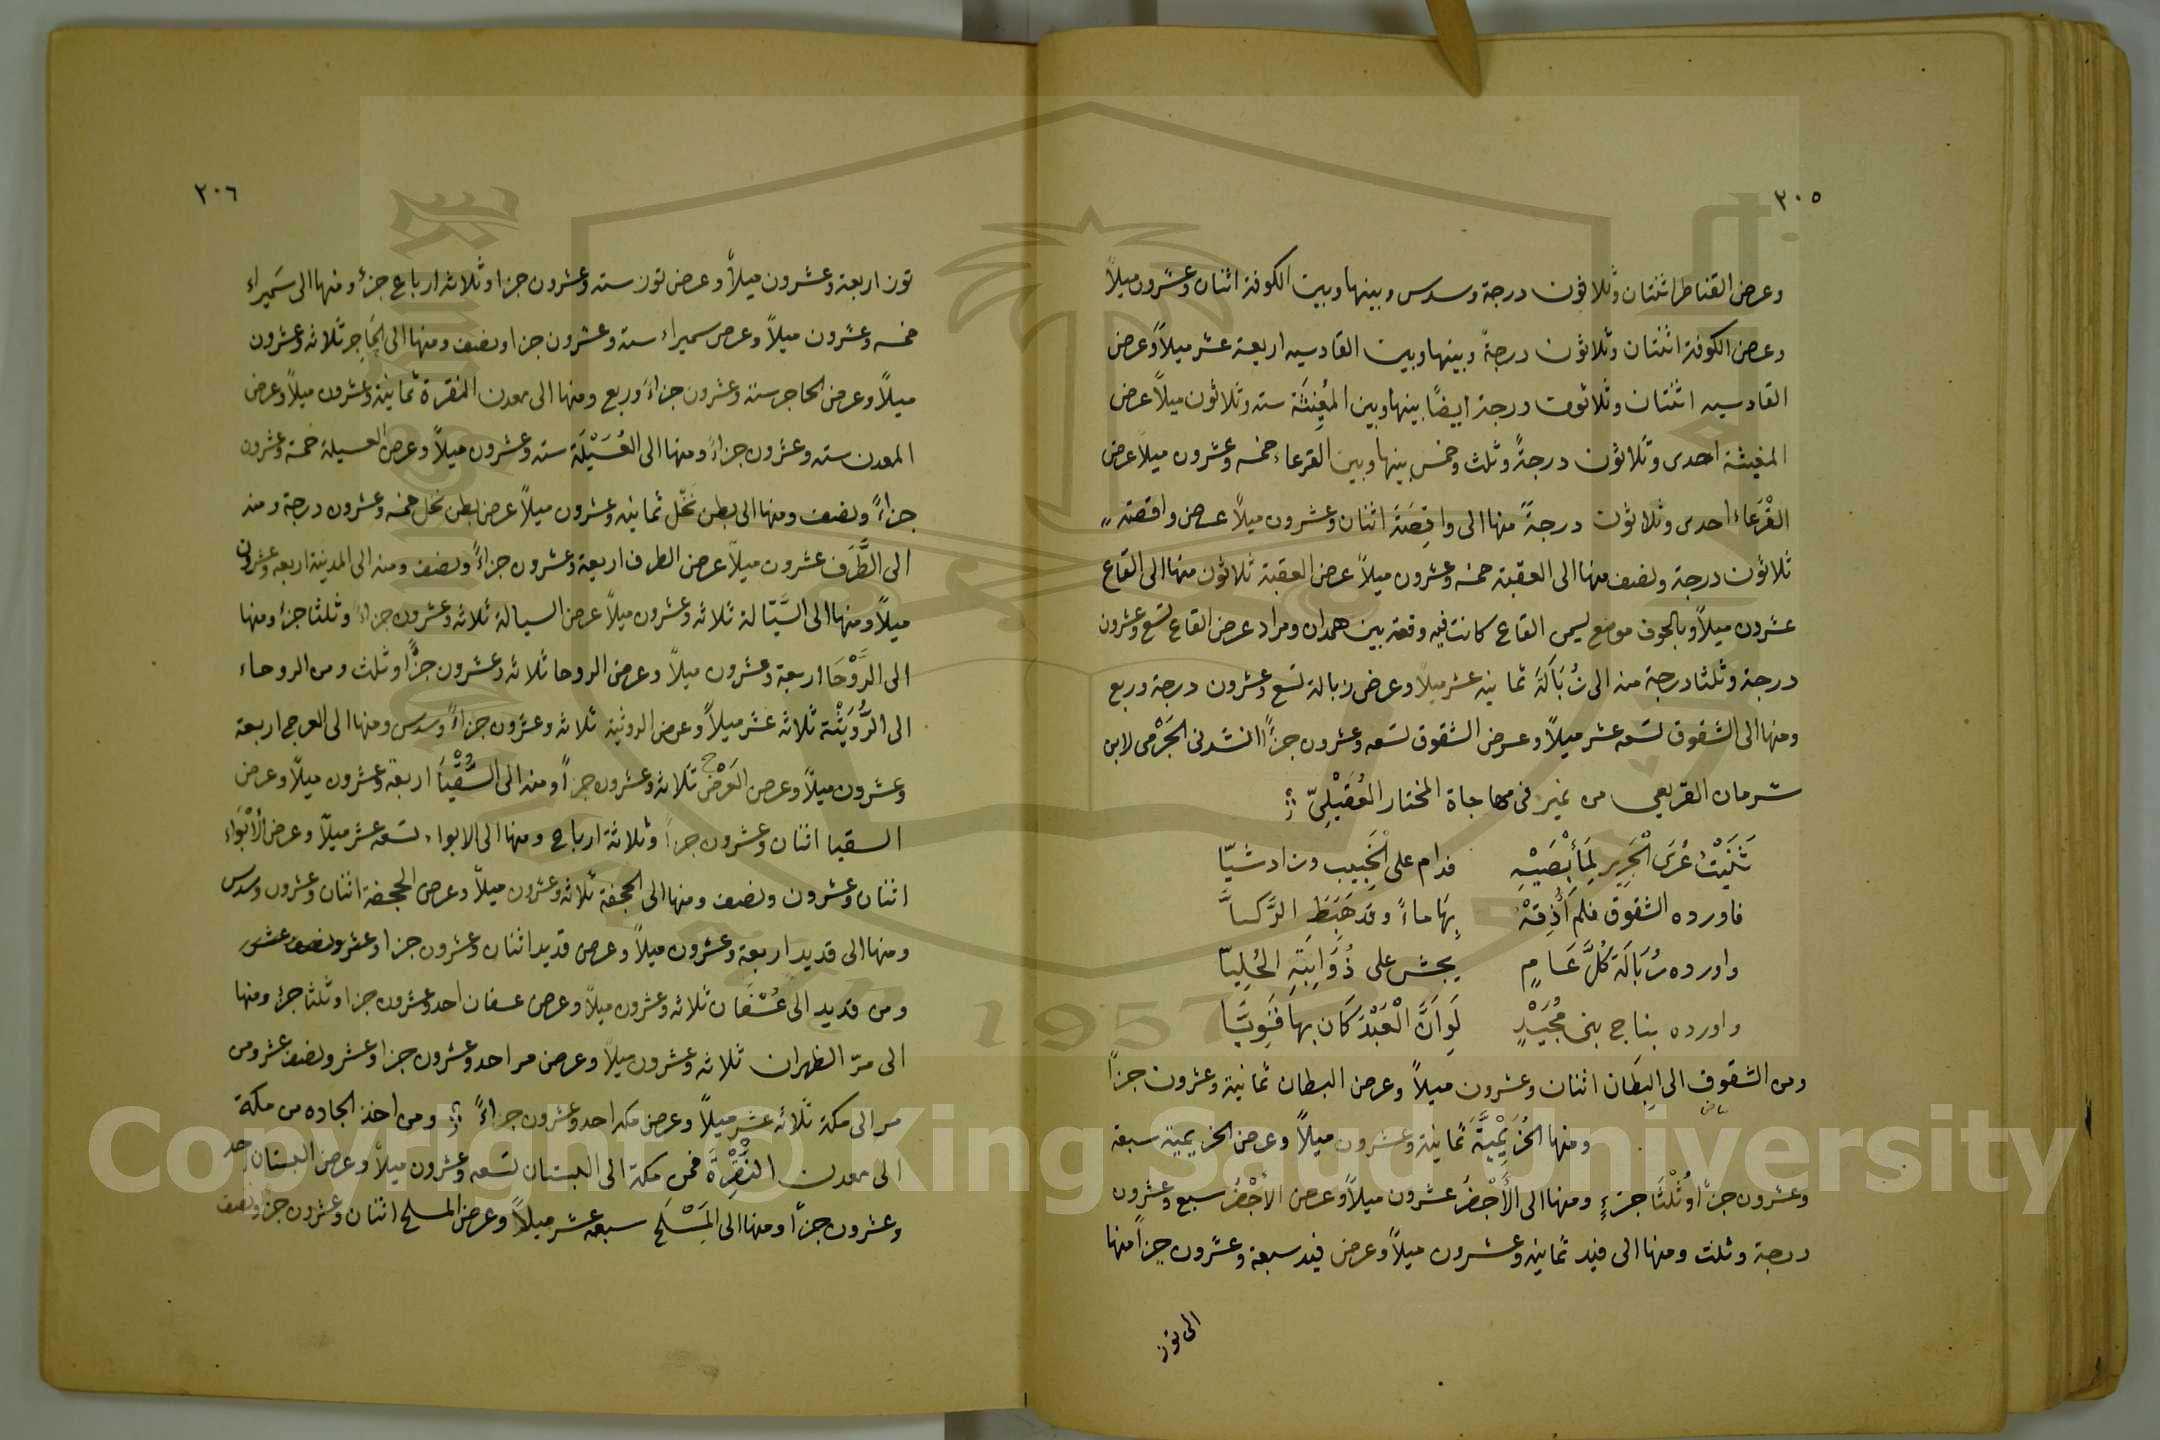 ٢٠٥
وعرض القناطر اثنتان وثلاثون درجة وسدس وبينها وبين الكوفة اثنان وعشرون ميلاً
وعرض الكوفة اثنتان وثلاثون درجةً وبينها وبين القادسيه اربعة عشر ميلاً وعرض
القادسيه اثنتان وثلاثون درجة ايضًا بينها وبين المُغِيثَة سته وثلاثون ميلاً عرض
المغيثة احدى وثلاثون درجةً وثلث وخمس بينها وبين القرعاء خمسه وعشرون ميلا عرض
القَرْعَاء احدى وثلاثون درجةً منها الى واقِصَةَ اثنان وعشرون ميلاً عرض واقصة
ثلاثون درجة ونصف منها الى العقبة خمسه وعشرون ميلاً عرض العقبة ثلاثون منها الى القاع
عشرون ميلاً وبالجوف موضع يسمى القاع كانت فيه وقعة بين همدان ومراد عرض القاع تسع وعشرون
درجة وثلثا درجة منه الى زُبَالَة ثمانيه عشر ميلاً وعرض زبالة تسع وعشرون درجة وربع
ومنها الى الشقوق تسعه عشر ميلاً وعرض الشقوق تسعه وعشرون جزءًا انشدنى الجَرْمى لابن
شرمان القريعي من نمير فى مهاجاة المختار العُقَيْلِىّ
ثَنَيْتُ عُرَى الْجَرِيرِ لِمَأْبِضَيْهِ فدام على الْخَبِيب وزاد شيّا
فاورده الشقوق فلم أُذِقْهُ بِهَا ماءً وقد هَبَطَ الرَّكيَّا
واورده زُبَالَة كُلَّ عَامٍ يجش على ذُؤَابَتِهِ الحُلِيّا
واورده بناج بنى مُجَيْدٍ لَوِ انَّ الْعَبْدَ كان بها قَوِيَّا
ومن الشقوق الى البِطَان اثنان وعشرون ميلاً وعرض البطان ثمانية وعشرون جزأً
بياض
ومنها الخُزَيْمِيَّةَ ثمانية وعشرون ميلاً وعرض الخزيمية سبعة
وعشرون جزأً وثُلْثَا جزءٍ ومنها الى الأَجْفُر عشرون ميلاً وعرض الأَجْفُر سبع وعشرون
درجة وثلث ومنها الى فيد ثمانيه وعشرون ميلاً وعرض فيد سبعة وعشرون جزأً منها
الى توز
٢٠٦
توز اربعة وعشرون ميلاً وعرض توز سته وعشرون جزا وثلاثه ارباع جزء ومنها الى سَمِيراء
خمسه وعشرون ميلاً وعرض سميراء سته وعشرون جزا ونصف ومنها الى الحَاجِر ثلاثه وعشرون
ميلاً وعرض الحاجر سته وعشرون جزاءً وربع ومنها الى معدن النقرة ثمانية وعشرون ميلاً وعرض
المعدن سته وعشرون جزاءً ومنها الى العُسَيْلَة سته وعشرون ميلاً وعرض العسيلة خمسة وعشرون
جزاءً ونصف ومنها الى بطن نَخْل ثمانيه وعشرون ميلاً عرض بطن نخل خمسه وعشرون درجة ومنه
الى الطَّرَف عشرون ميلاً عرض الطرف اربعة وعشرون جزاءً ونصف ومنه الى المدينة اربعه وعشرون
ميلاً ومنها الى السَّيَّالة ثلاثه وعشرون ميلاً عرض السيالة ثلاثه وعشرون جزاءً وثلثا جزء ومنها
الى الرَّوْحَا اربعة وعشرون ميلاً وعرض الروحا ثلاثه وعشرون جزًا وثلث ومن الروحاء
الى الرُّوَيْثَة ثلاثه عشر ميلاً وعرض الرويثة ثلاثه وعشرون جزاءً وسدس ومنها الى العرج اربعة
وعشرون ميلاً وعرض العَرْج ثلاثه وعشرون جزاً ومنه الى السُّقْيَا اربعة وعشرون ميلاً وعرض
السقيا اثنان وعشرون جزاً وثلاثة ارباع ومنها الى الابواء تسعه عشر ميلاً وعرض الأَبْوَاء
اثنان وعشرون ونصف ومنها الى الجحفة ثلاثه وعشرون ميلاً وعرض الجحفة اثنان وعشرون وسدس
ومنها الى قديد اربعة وعشرون ميلاً وعرض قديد اثنان وعشرون جزا وعشر ونصف عشر
ومن قديد الى عُسْفَان ثلاثه وعشرون ميلاً وعرض عسفان احد وعشرون جزا وثلثا جزء ومنها
الى مرّ الظهران ثلاثه وعشرون ميلاً وعرض مر احد وعشرون جزا وعشر ونصف عشر ومن
مر الى مكة ثلاثه عشر ميلاً وعرض مكه احد وعشرون جزاءً ومن اخذ الجاده من مكة
الى معدن النَّقْرَة فمن مكة الى البستان تسعه وعشرون ميلاً وعرض البستان احد
وعشرون جزءًا ومنها الى المَسْلَح سبعه عشر ميلاً وعرض المسلح اثنان وعشرون جزءً ونصف
Copyright © King Saud University
1957